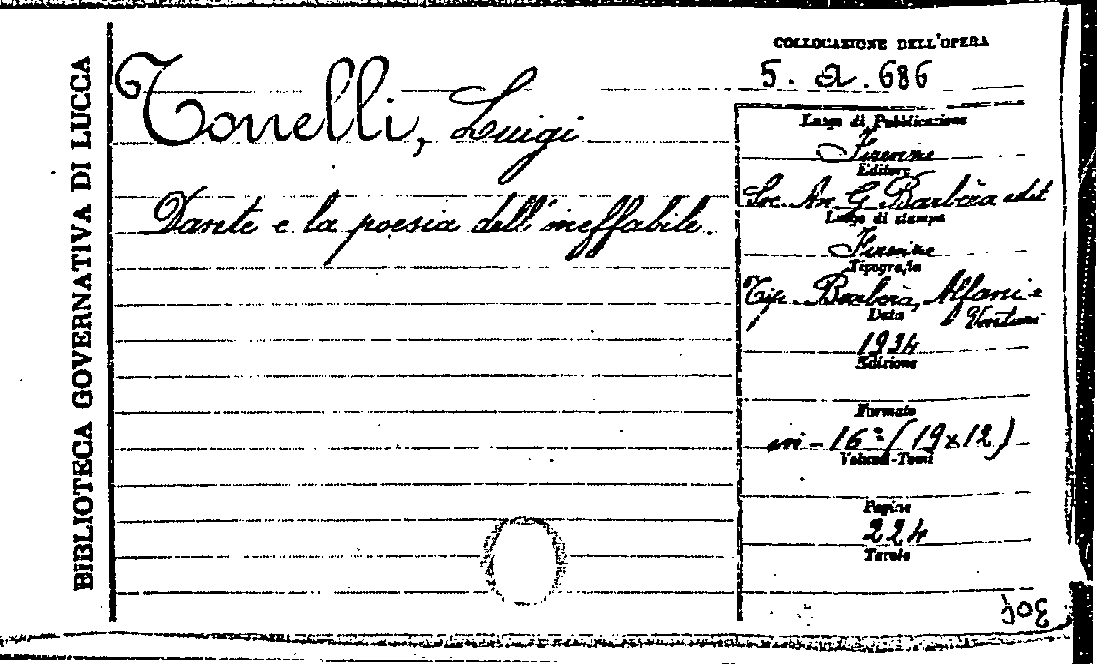 BIBLIOTECA GOVERNATIVA DI LUCCA
Tonelli, Luigi
Dante e la poesia dell'ineffabile.
COLLOCAZIONE DELL'OPERA
5. a. 686
Luogo di Pubblicazione
Firenze
Editore
Soc. An. G. Barbèra edit
Luogo di stampa
Firenze
Tipografia
Tip. Barbèra, Alfani e
Venturi
Data
1934
Edizione
Formato
in-16° (19x12)
Volumi-Tomi
Pagine
224
Tavole